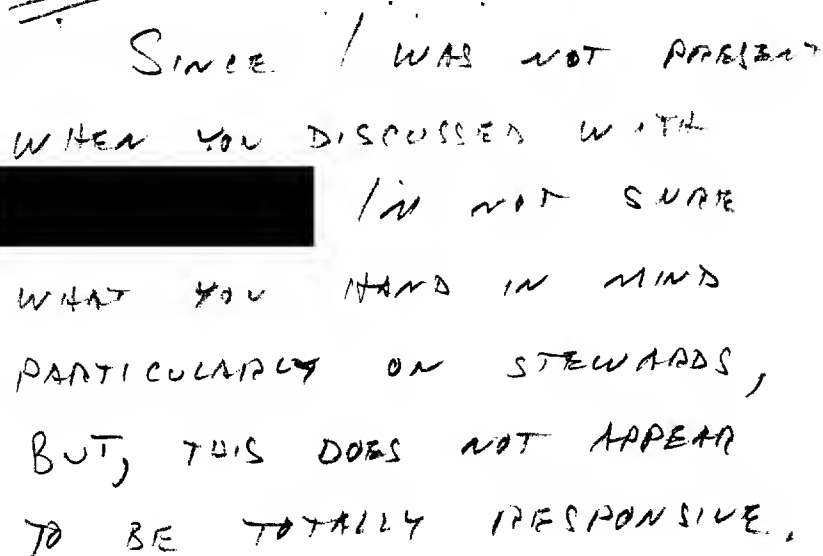 SINCE I WAS NOT PRESENT
WHEN YOU DISCUSSED WITH
I'M NOT SURE
WHAT YOU HAND IN MIND
PARTICULARLY ON STEWARDS,
BUT, THIS DOES NOT APPEAR
TO BE TOTALLY RESPONSIVE.